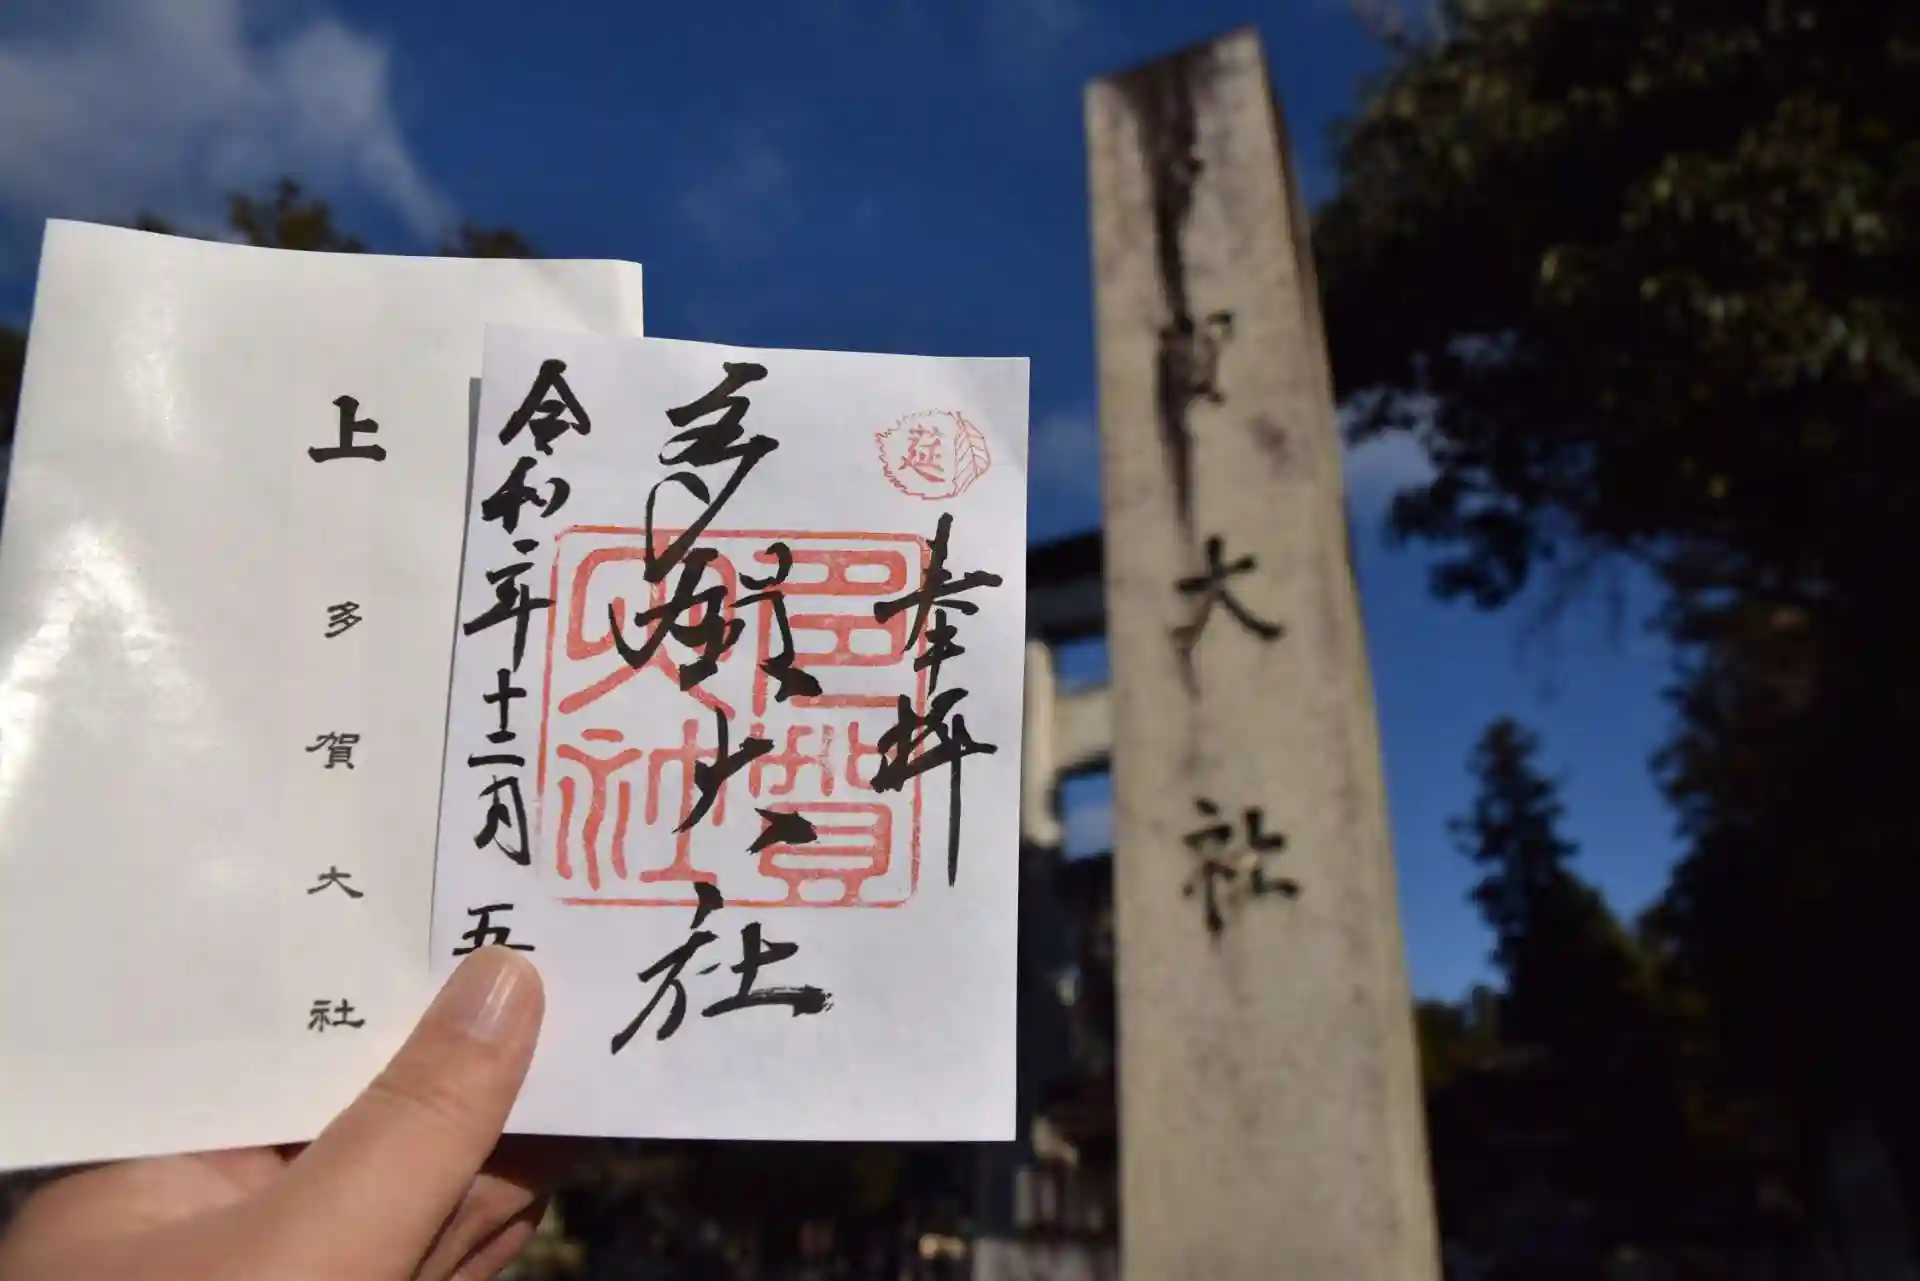 上
多賀大社
奉拝
延
多賀大社
多賀大社
令和二年十二月五
賀大社